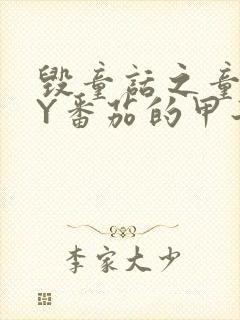 毁童话之童
Y番茄的甲
李家大少